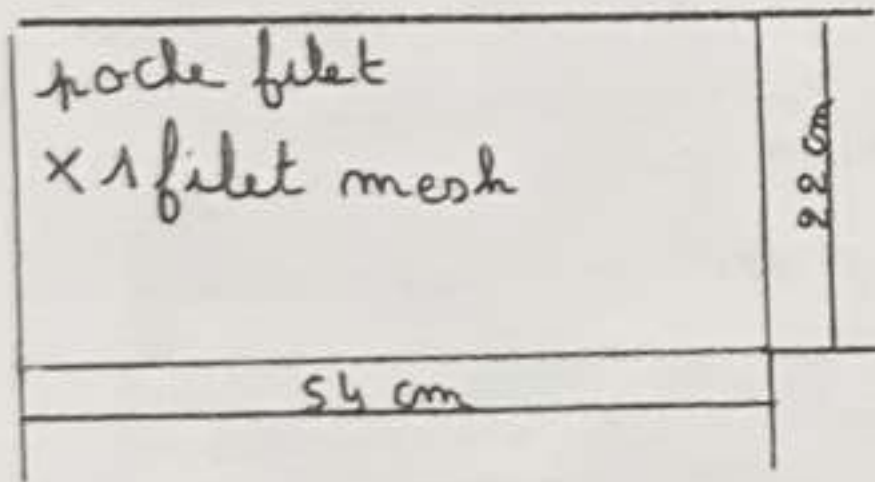 poche filet
x 1 filet mesh
22 cm
54 cm